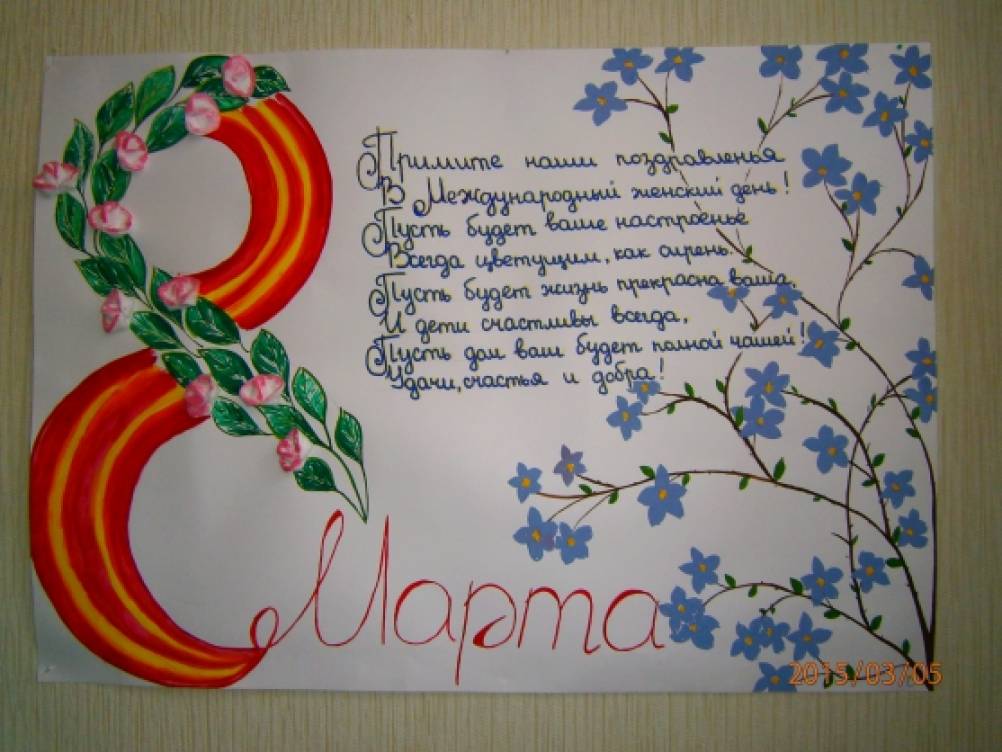 Примите наши поздравленья
В Международный женский день!
Пусть будет ваше настроенье
Всегда цветущим, как сирень.
Пусть будет жизнь прекрасна ваша,
И дети счастливы всегда,
Пусть дом ваш будет полной чашей!
Удачи, счастья и добра!
8
Марта
2015/03/05